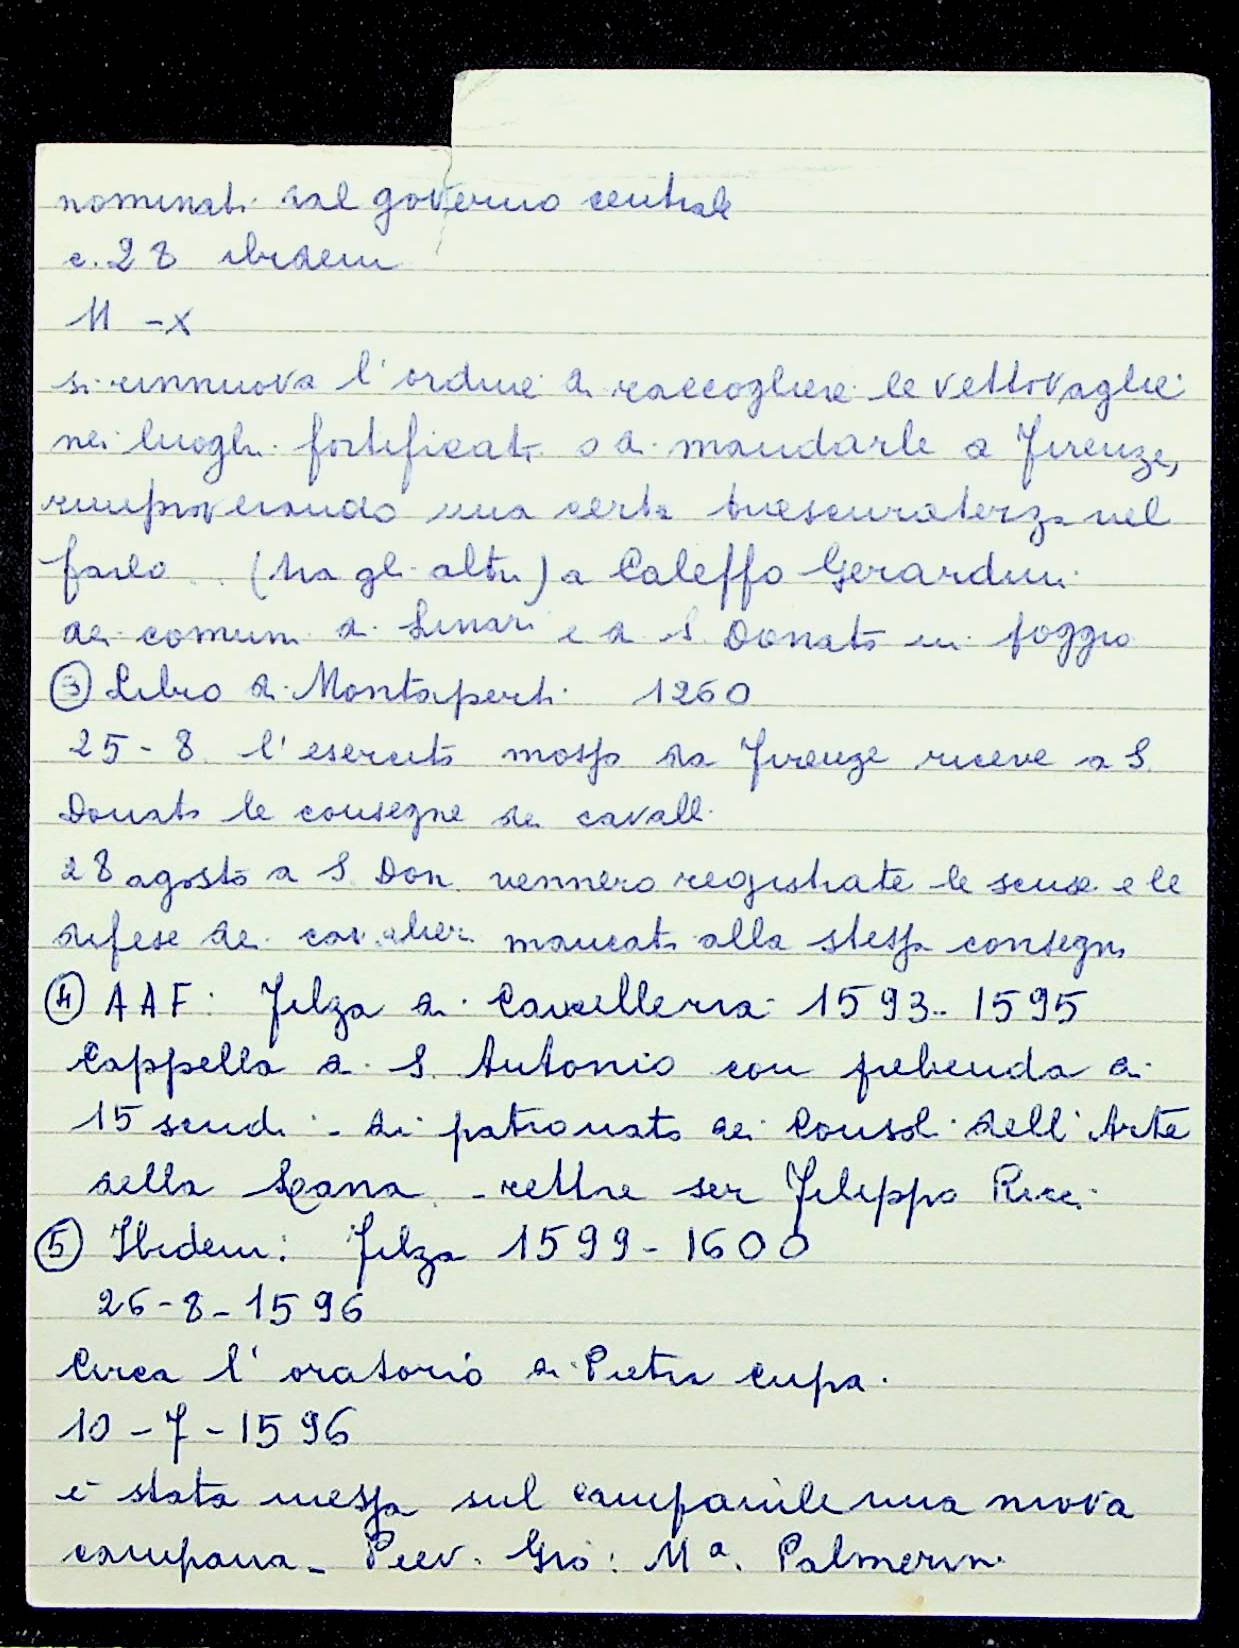 nominati dal governo centrale
c. 28 ibidem
11 - X
si rinnuova l'ordine di raccogliere le vettovaglie
nei luoghi fortificati o di mandarle a Firenze,
rimproverando una certa trascuratezza nel
farlo .. (tra gli altri) a Caleffo Gerardini
dei comuni di Linari e di S. Donato in Poggio
③ Libro di Montaperti 1260
25 - 8 l'esercito mosso da Firenze riceve a S.
Donato le consegne dei cavalli
28 agosto a S. Don. vennero registrate le scuse e le
difese dei cavalieri mancati alla stessa consegna
④ AAF: Filza di Cancelleria 1593 - 1595
Cappella di S. Antonio con prebenda di
15 scudi - di patronato dei Consoli dell'Arte
della Lana - rettore ser Filippo Ricci
⑤ Ibidem: Filza 1599 - 1600
26 - 8 - 1596
Circa l'oratorio di Pietra Cupa.
10 - 7 - 1596
è stata messa sul campanile una nuova
campana - Piev. Gio: Mª. Palmerini